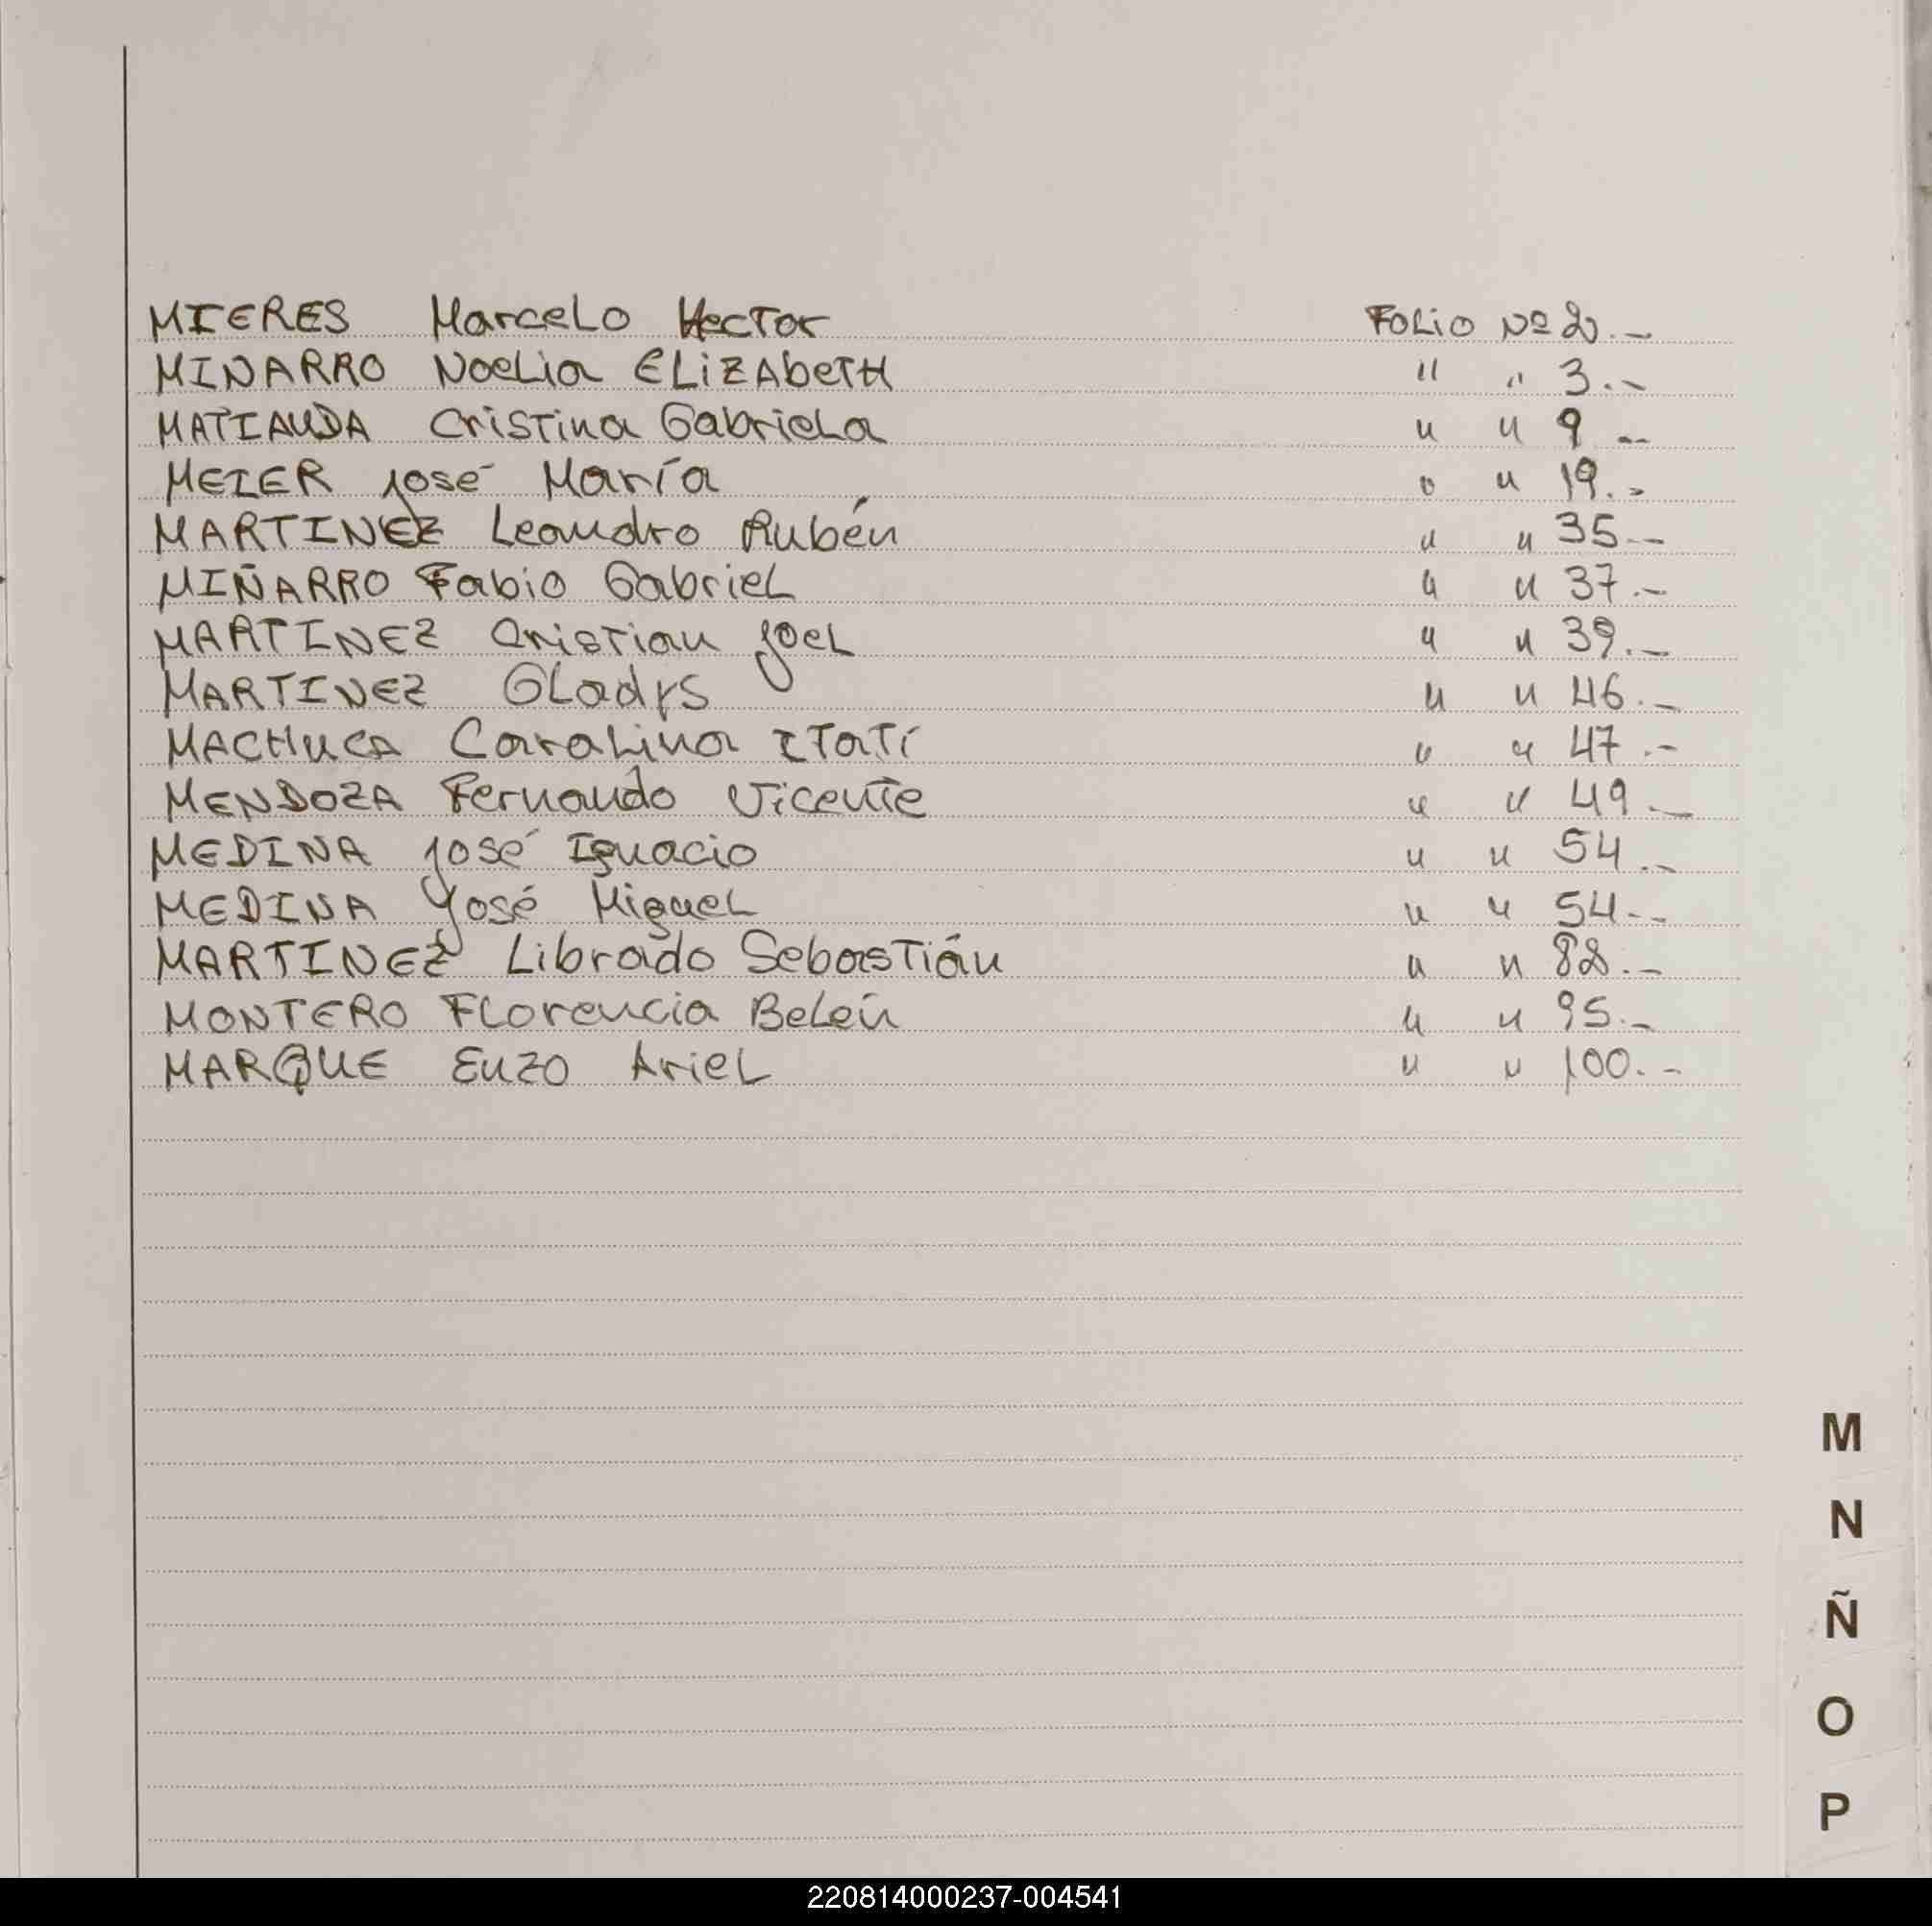 MIERES Marcelo Hector Folio Nº 2.-
MINARRO Noelia ELiZAbeTH " " 3.-
MATIAUDA Cristina Gabriela " " 9 --
MEIER José María " " 19.-
MARTINEZ Leandro Rubén " " 35.-
MIÑARRO Fabio Gabriel " " 37.-
MARTINEZ Cristian Joel " " 39.-
MARTINEZ Gladys " " 46.-
MACHUCA Caralina Itatí " " 47.-
MENDOZA Fernando Vicente " " 49.-
MEDINA José Ignacio " " 54.-
MEDINA José Miguel " " 54.-
MARTINEZ Librado Sebastián " " 82.-
MONTERO Florencia Belén " " 95.-
MARQUE Enzo Ariel " " 100.-
M
N
Ñ
O
P
220814000237-004541